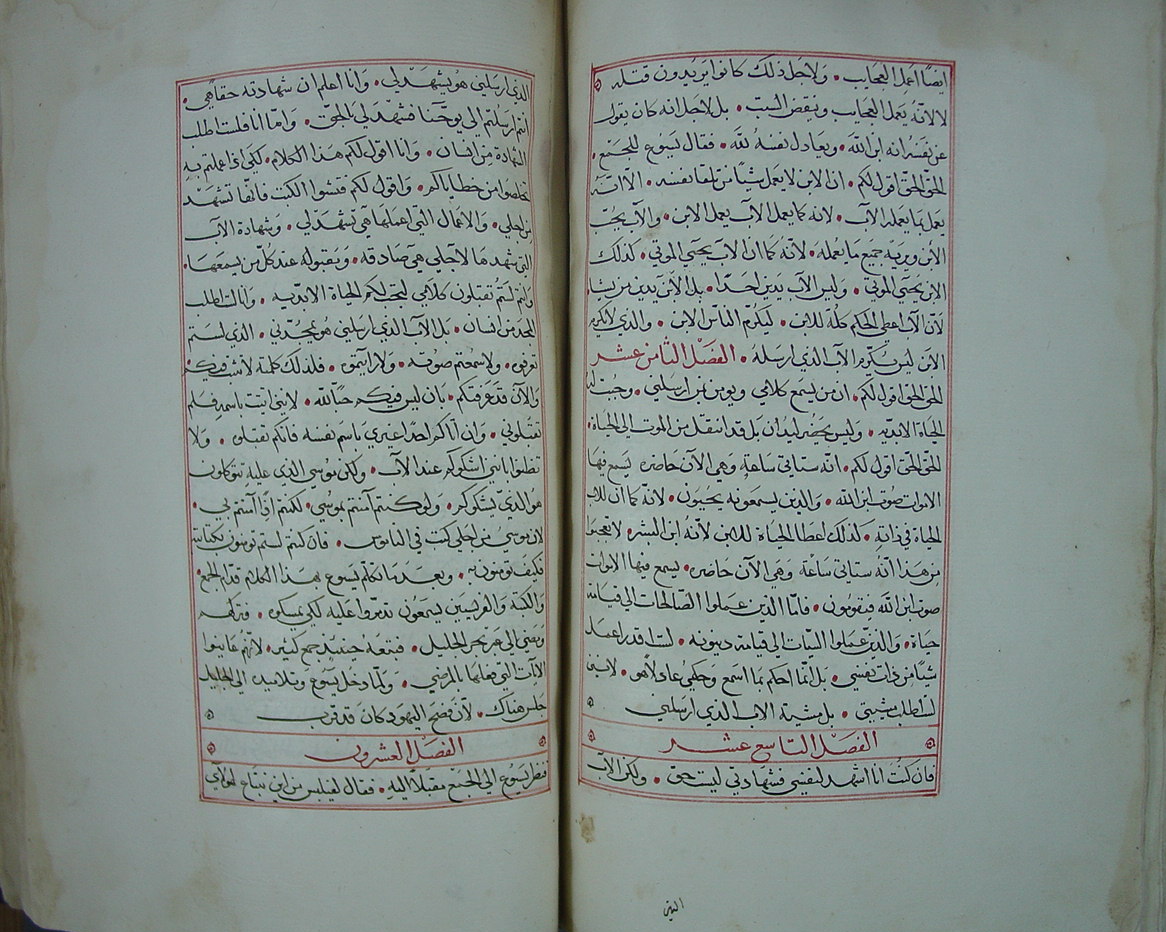 ايضًا اعمل العجايب • ولاجل ذلك كانوا يريدون قتله
لا لانّه يعمل العجايب وينقض السبت • بل لاجل انه كان يقول
عن نفسه انه ابن الله • ويعادل نفسه لله • فقال يسوع للجمع •
الحق الحق اقول لكم • ان الابن لا يعمل شيًا من تلقا نفسه • الا انّه
يعمل ما يعمله الآب • لانه كما يعمل الآب يعمل الابن • والآب يحبّ
الأبن ويريه جميع ما يعمله • لأنّه كما ان الآب يحيي الموتي • كذلك
الابن يحيي الموتي • وليس الآب يدين احدًا • بل الأبن يدين من يشا
لانّ الآب اعطي الحكم كلّه للابن • ليكرم الناس الابن • والذي لا يكرم
الابن ليس يكرم الآب الذي ارسله • الفصل الثامن عشر
الحق الحق اقول لكم • ان من يسمع كلامي ويومن بمن ارسلني • وجبت له
الحياة الابديه • وليس يحضر ليدان بل قد انتقل من الموت الي الحياة •
الحق الحق اقول لكم • انّه ستاتي ساعة وهي الآن حاضره يسمع فيها
الاموات صوت ابن الله • والذين يسمعونه يحييون • لانّه كما ان للاب
الحياة في ذاته • كذلك اعطا الحياة للابن لأنّه ابن البشر • لا تعجبوا
من هذا انّه ستاتي ساعة وهي الآن حاضره • يسمع فيها الاموات
صوت ابن الله فيقومون • فامّا الذين عملوا الصّالحات الي قيامة
حياة • والذين عملوا السيّات الي قيامة دينونه • لست اقدر اعمل
شيًا من ذات نفسي • بل انّما احكم بما اسمع وحكمي عادلاً هو • لانّي
لست اطلب مشيتي • بل مشية الاب الذي ارسلني
الفصل التاسع عشر
فان كنت انا اشهد لنفسي فشهادتي ليست حق • ولكن الآب
الذي ارسلني هو يشهد لي • وانا اعلم ان شهادته حقا هي •
انتم ارسلتم الي يوحنّا فشهد لي بالحقّ • وامّا انا فلست اطلب
الشهادة من انسان • وانا اقول لكم هذا الكلام • لكي اذا علمتم به
تخلصوا من خطاياكم • واقول لكم فتشوا الكتب فانّها تشهد
من اجلي • والاعمال التي اعملها هي تشهد لي • وشهادة الآب
التي شهد بها لاجلي هي صادقه • ومقبوله عند كلّ من يسمعها •
وانتم لستم تقبلون كلامي لتجب لكم الحياة الابديّه • وانا لست اطلب
المجد من انسان • بل الآب الذي ارسلني هو يمجّدني • الذي لستم
تعرفوه • ولا سمعتم صوته • ولا رايتموه • فلذلك كلمته لا تثبت فيكم
والآن قد عرفتكم • بان ليس فيكم حبّاً لله • لاني اتيت باسمه فلم
تقبلوني • وان اتاكم احدًا غيري باسم نفسه فانّكم تقبلوه • ولا
تظنّوا بانّي اشكوكم عند الآب • ولكن موسي الذي عليه تتوكلون
هو الذي يشكوكم • ولو كنتم آمنتم بموسي • لكنتم اذًا آمنتم بي •
لان موسي من اجلي كتب في الناموس • فان كنتم لستم تومنون بكتابته
فكيف تومنون بي • وبعد ما تكلّم يسوع بهذا الكلام قدام الجمع •
والكتبة والفريسيين يسمعون تذمّروا عليه لكي يمسكوه • فتركهم
ومضي الي عبر بحر الجليل • فتبعه حينيذ جمع كثير • لانّهم عاينوا
الآيات التي فعلها بالمرضي • ولمّا دخل يسوع وتلاميذه الي الجليل
جلس هناك • لأن فصح اليهود كان قد قرب
الفصل العشرون
فنظر يسوع الي الجمع مقبلاً اليه • فقال لفيلبس من اين نبتاع لهولآي